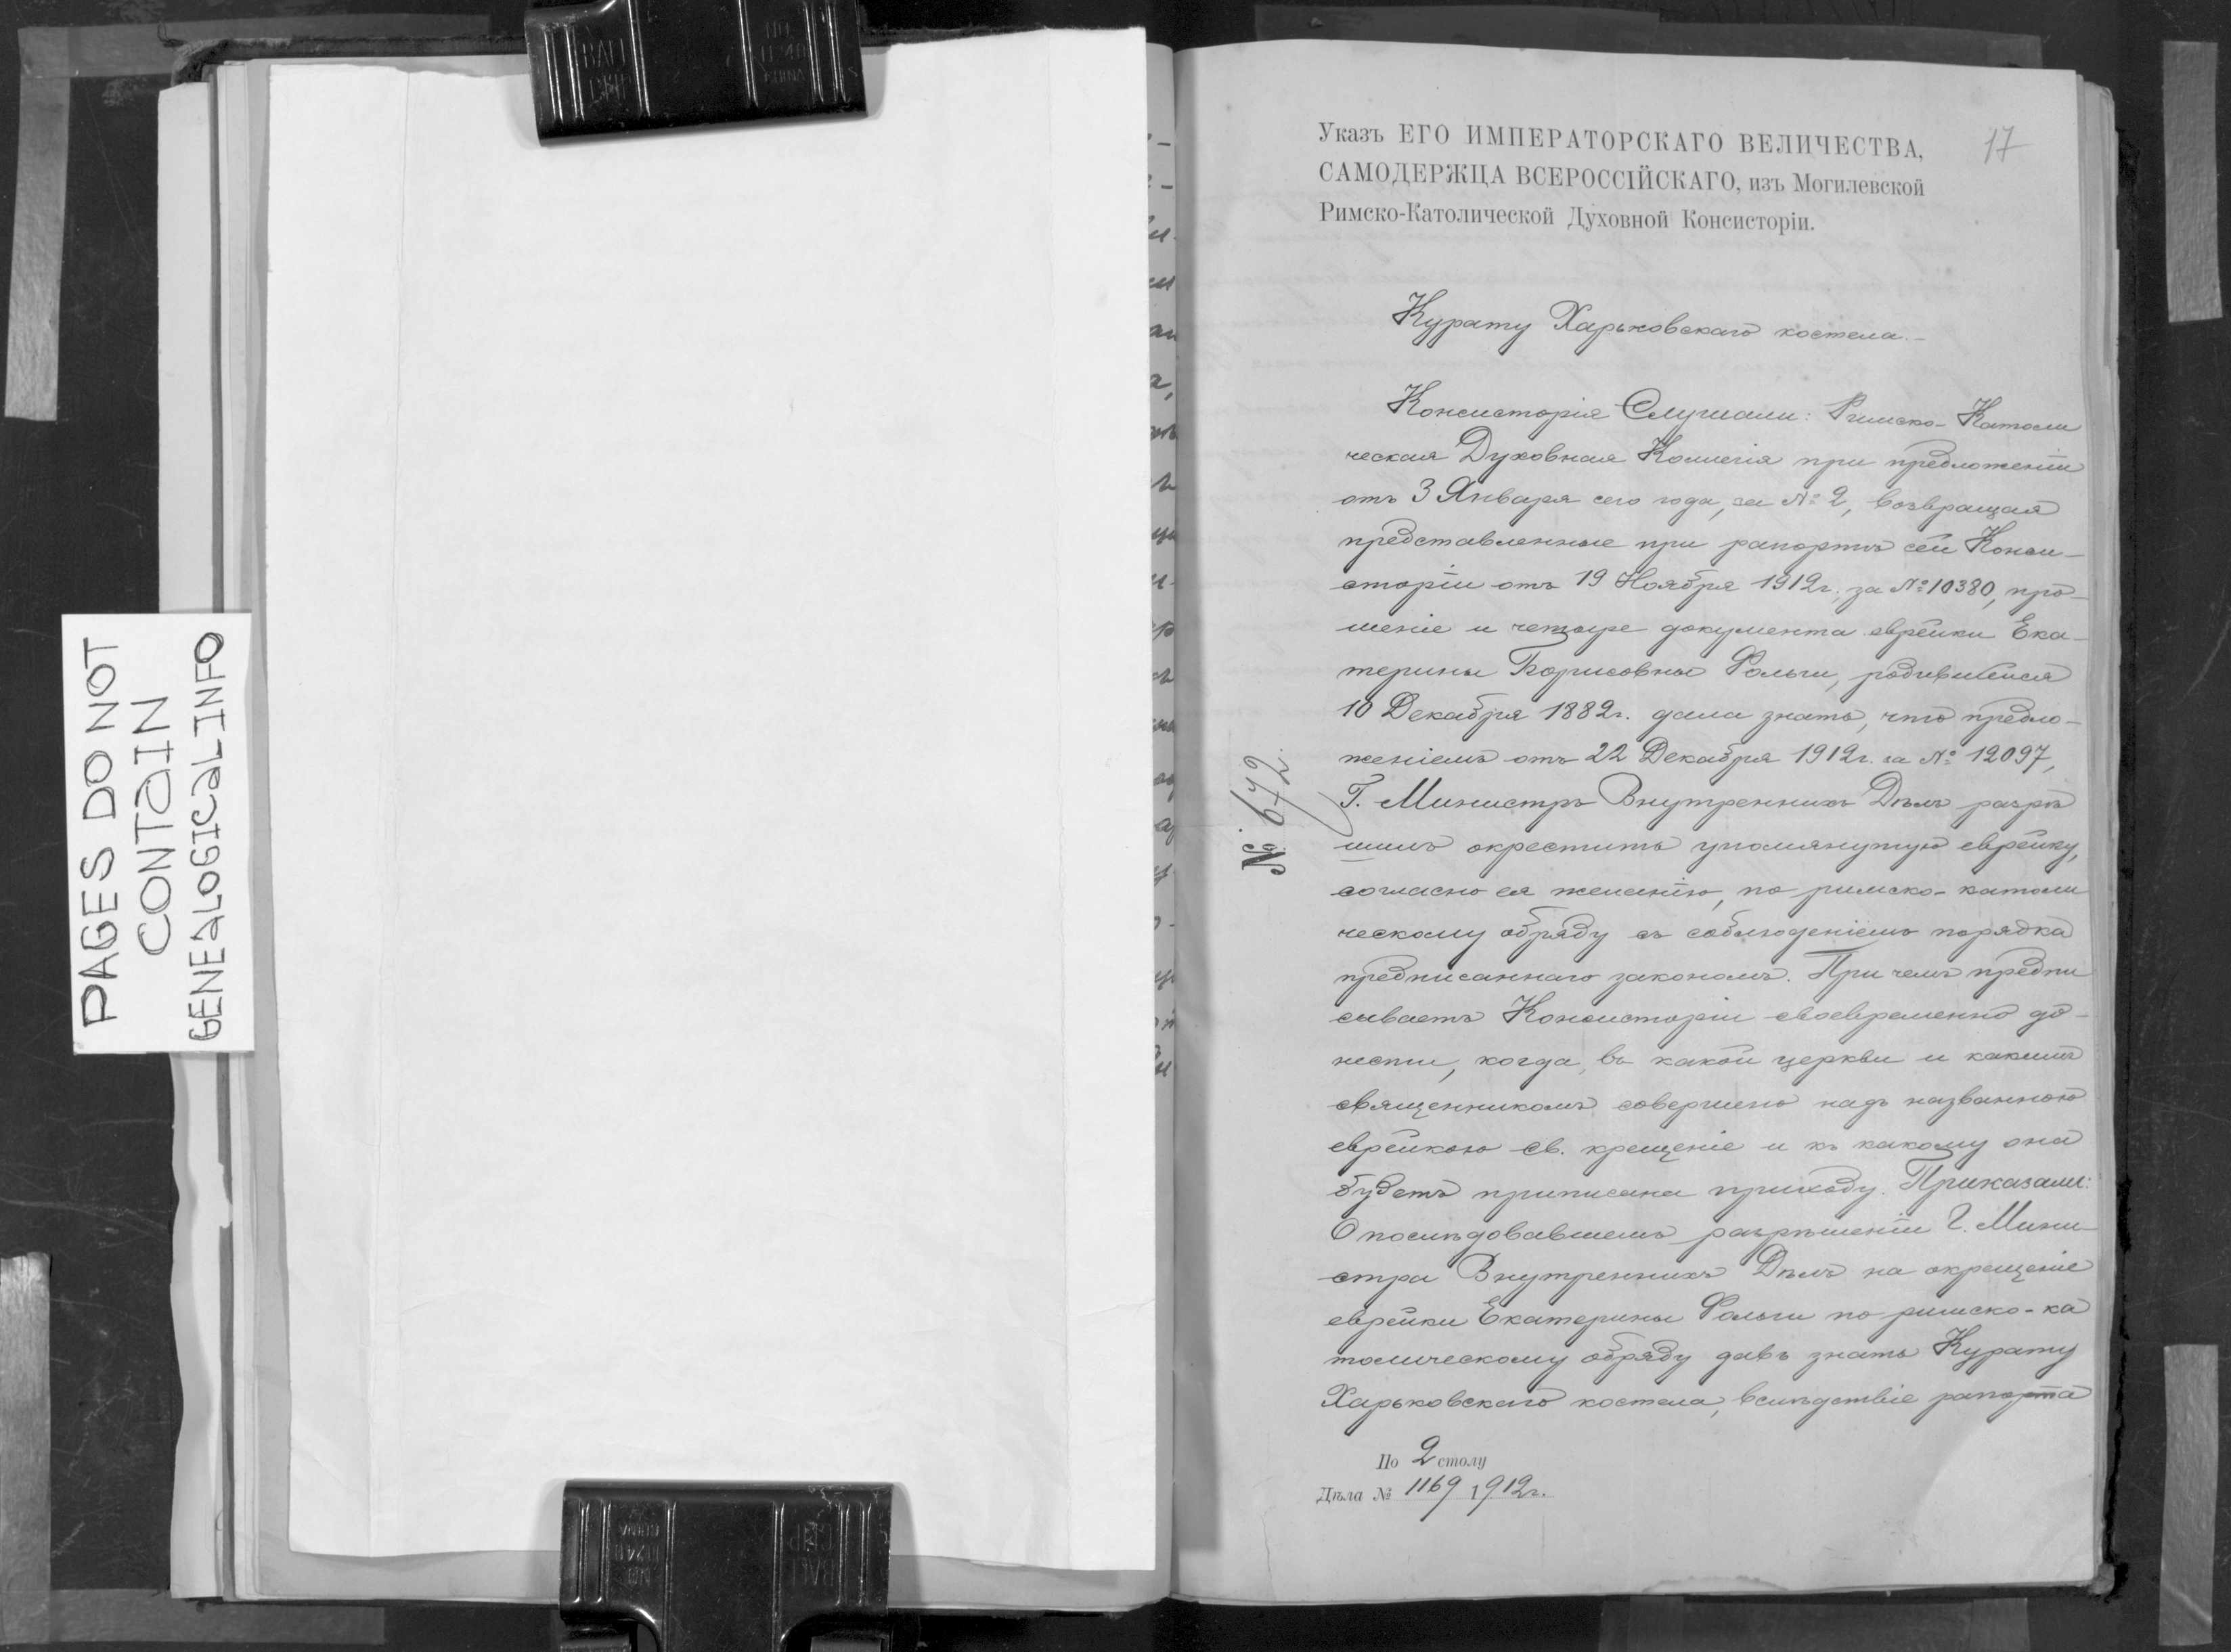 PAGES DO NOT
CONTAIN
GENEALOGICAL INFO
17
Указъ ЕГО ИМПЕРАТОРСКАГО ВЕЛИЧЕСТВА,
САМОДЕРЖЦА ВСЕРОССІЙСКАГО, изъ Могилевской
Римско-Католической Духовной Консисторіи.
Курату Харьковскаго костела.-
Консисторія Слушали: Римско-Католи
ческая Духовная Коллегія при предложеніи
отъ 3 Января сего года, за № 2, возвращая
представленные при рапортѣ сей Конси-
сторіи отъ 19 Ноября 1912г. за № 10380, про-
шеніе и четыре документа еврейки Ека-
терины Борисовны Фольги, родившейся
10 Декабря 1882г. дала знать, что предло-
женіемъ отъ 22 Декабря 1912г. за № 12097,
Г. Министръ Внутреннихъ Дѣлъ разрѣ
шилъ окрестить упомянутую еврейку,
согласно ея желанію, по римско-католи
ческому обряду съ соблюденіемъ порядка
предписаннаго закономъ. При чемъ предпи
сываетъ Консисторіи своевременно до-
нести, когда, въ какой церкви и какимъ
священникомъ совершено надъ названною
еврейкою св. крещеніе и къ какому она
будетъ приписана приходу. Приказали:
О послѣдовавшемъ разрѣшеніи Г. Мини-
стра Внутреннихъ Дѣлъ на окрещеніе
еврейки Екатерины Фольги по римско-ка
толическому обряду давъ знать Курату
Харьковскаго костела, вслѣдствіе рапорта
№ 672.
По 2 столу
Дѣла № 1169 1912г.